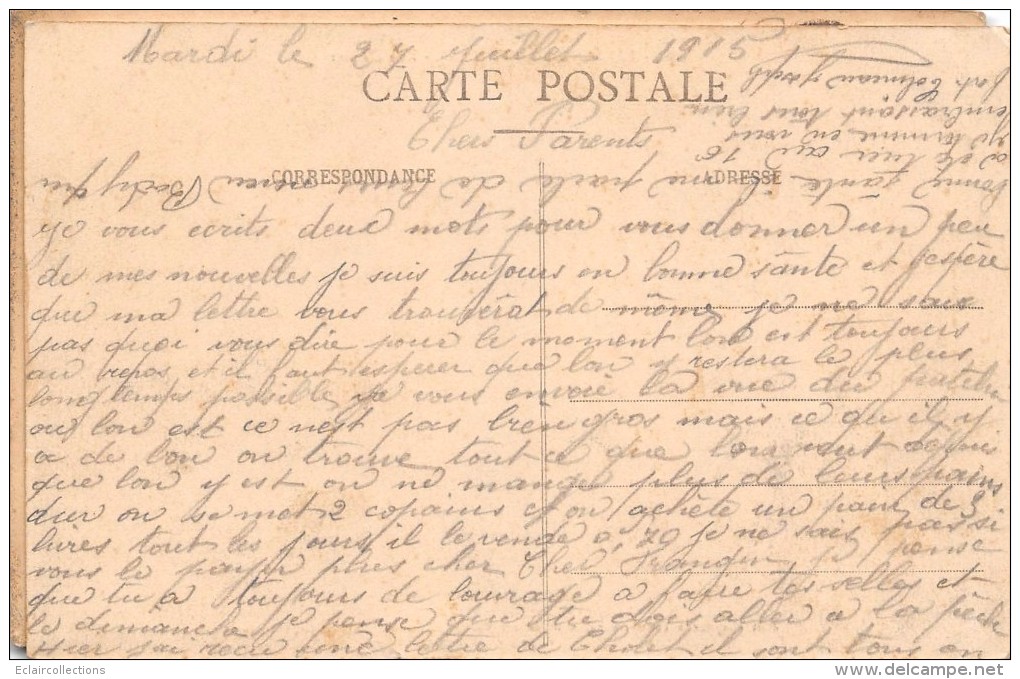 Mardi le 27 Juillet 1915
CARTE POSTALE
Chers Parents
CORRESPONDANCE
ADRESSE
Je vous écrits deux mots pour vous donner un peu
de mes nouvelles je suis toujours en bonne sante et j'espère
que ma lettre vous trouverat de même je ne saux
pas quoi vous dire pour le moment lon est toujours
au repos et il faut esperer que lon y restera le plus
longtemps possible je vous envoie la vue du patelin
ou lon est ce nest pas bien gros mais ce qu il y
a de bon on trouve tout ce que lon veut depuis
que lon y est on ne mange plus de leurs pains
dur on se met 2 copains et on achète un pain de 3
livres tout les jours il le vende 0,70 je ne sais pas si
vous le payer plus cher Cher je pense
que tu a toujours de louvrage a faire tes selles et
le dimanche je pense que tu dois aller a la pêche
Hier jai recu une lettre de Cholet il sont tous en
bonne santé il me parle de
a été tuer au
je termine en vous
embrassant tous bien
Joseph
Eclaircollections
delcampe.net